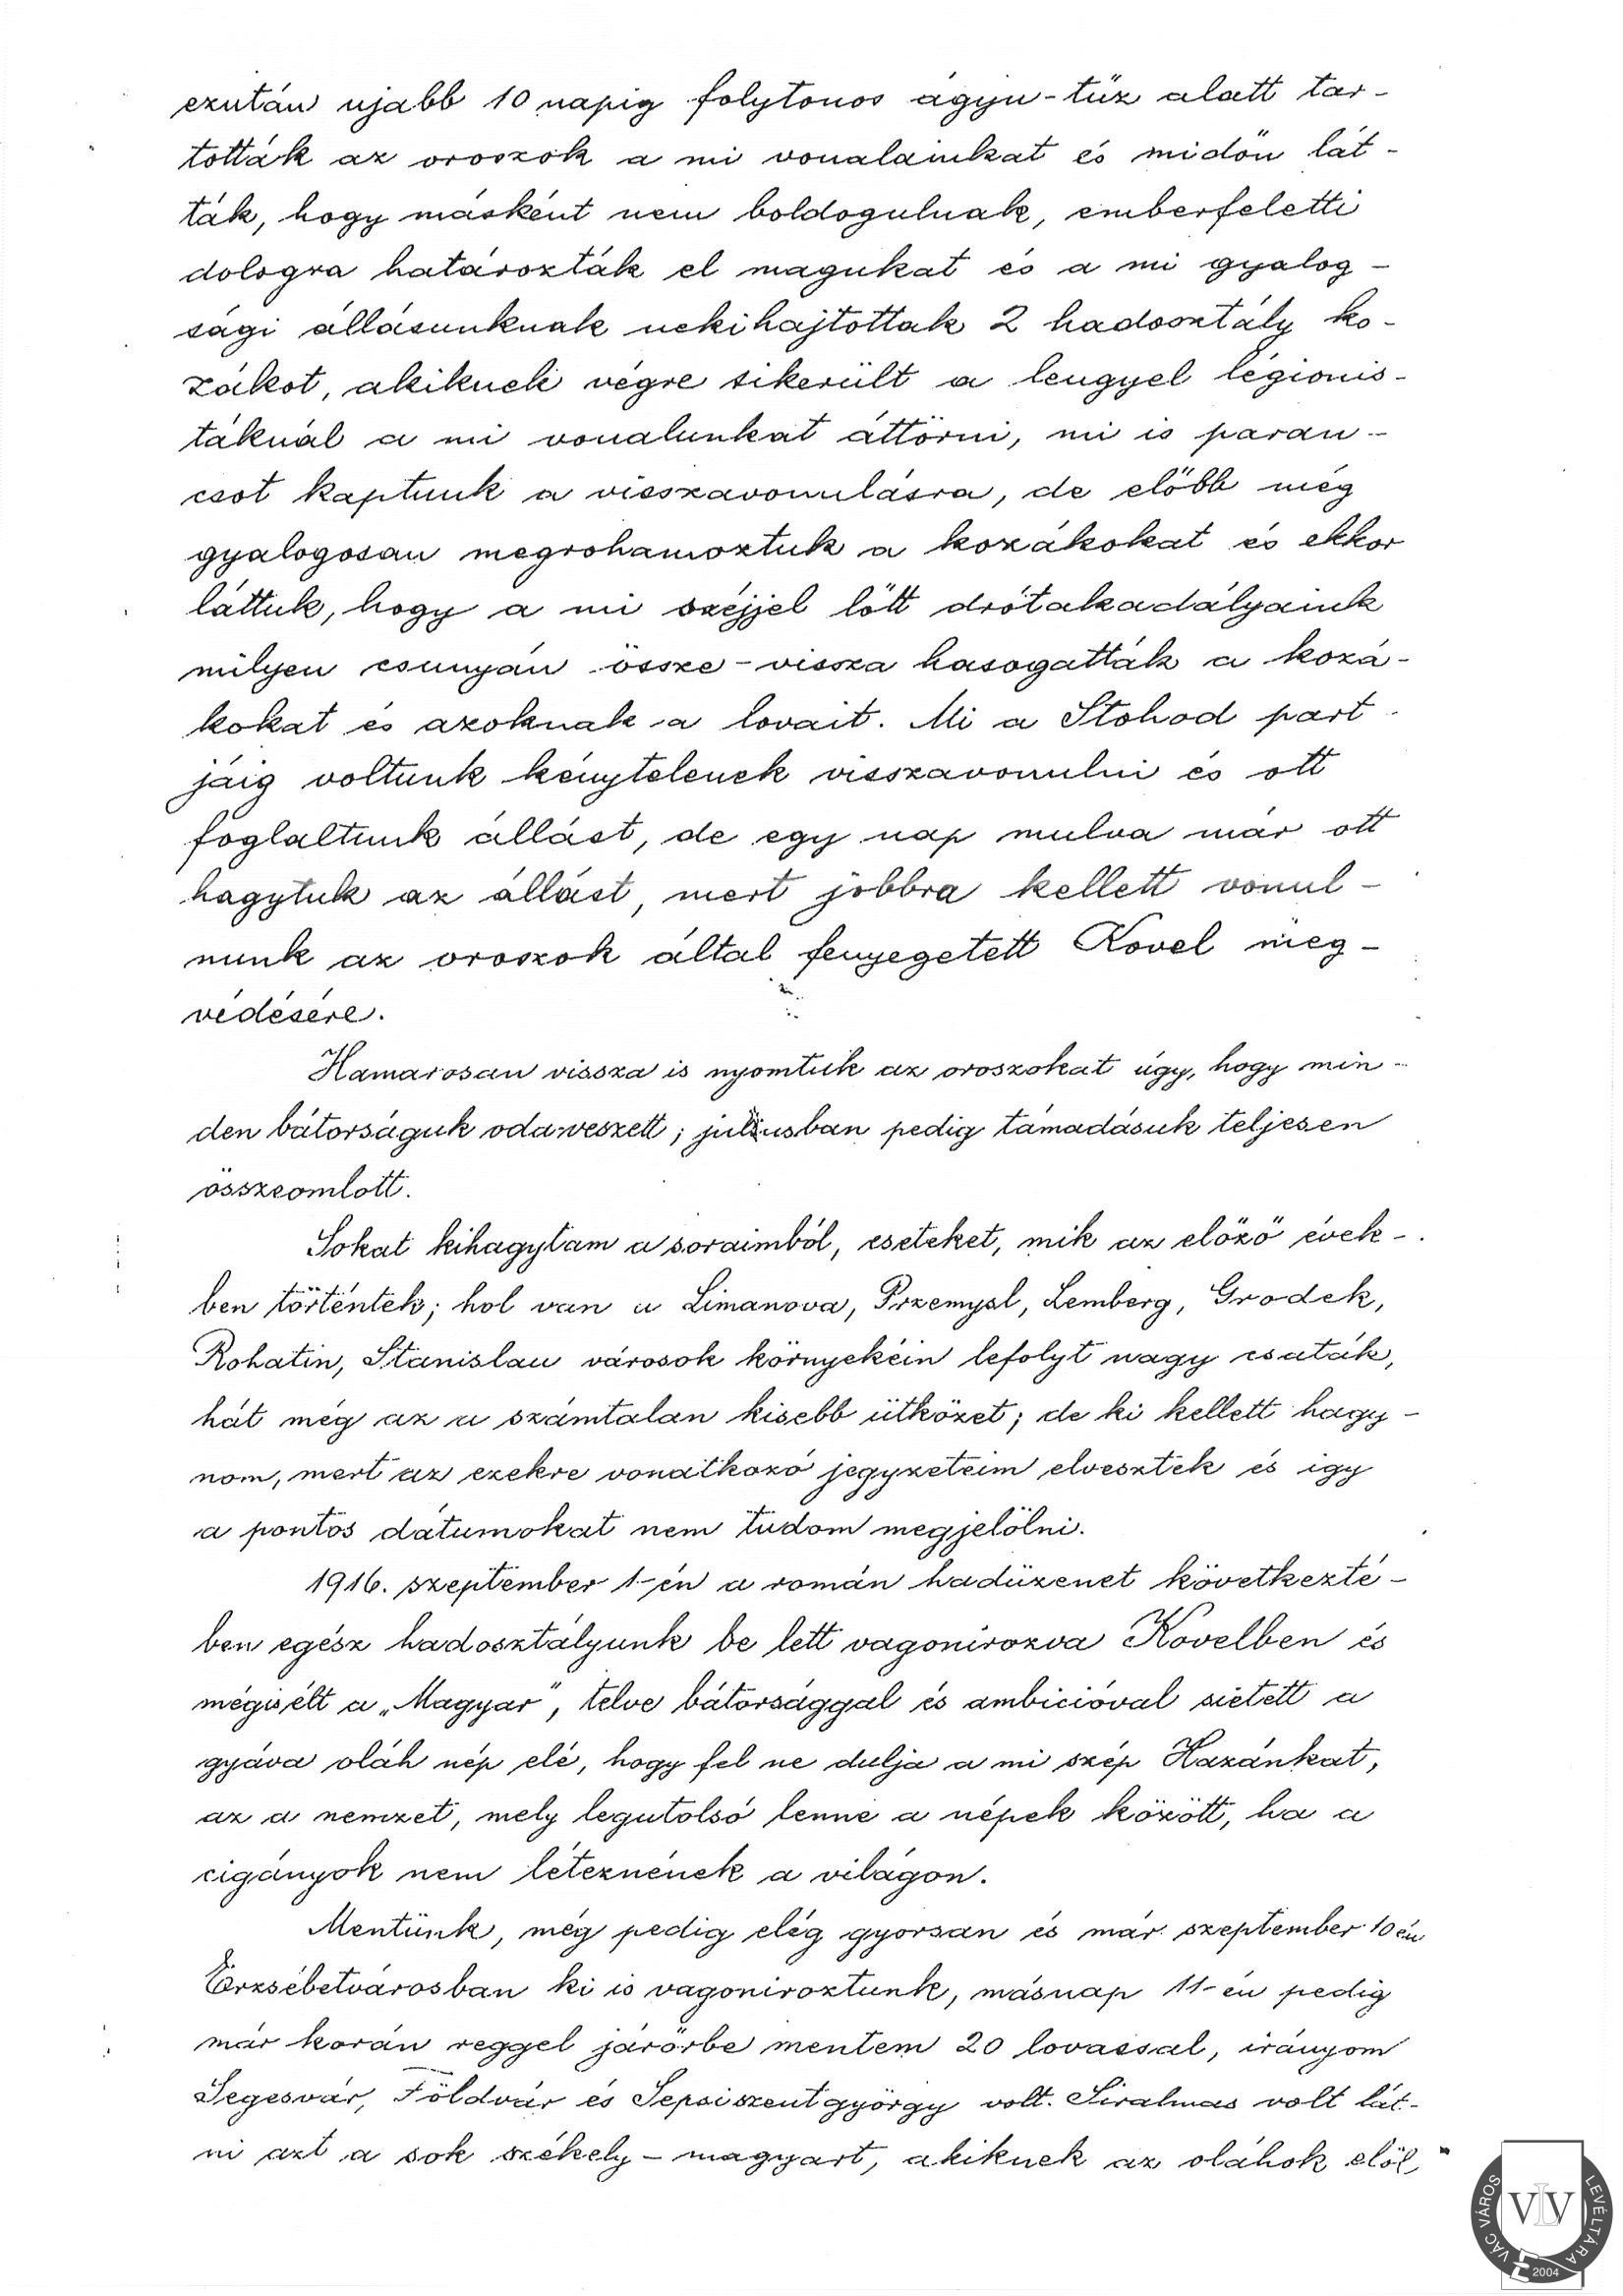 ezután ujabb 10 napig folytonos ágyu-tűz alatt tar-
tották az oroszok a mi vonalainkat és midőn lát-
ták, hogy másként nem boldogulnak, emberfeletti
dologra határozták el magukat és a mi gyalog-
sági állásunknak nekihajtottak 2 hadosztály ko-
zákot, akiknek végre sikerült a lengyel légionis-
táknál a mi vonalunkat áttörni, mi is paran-
csot kaptunk a visszavonulásra, de előbb még
gyalogosan megrohamoztuk a kozákokat és ekkor
láttuk, hogy a mi széjjel lőtt drótakadályaink
milyen csunyán össze-vissza hasogatták a kozá-
kokat és azoknak a lovait. Mi a Stohod part-
jáig voltunk kénytelenek visszavonulni és ott
foglaltunk állást, de egy nap mulva már ott
hagytuk az állást, mert jobbra kellett vonul-
nunk az oroszok által fenyegetett Kovel meg-
védésére.
Hamarosan vissza is nyomtuk az oroszokat úgy, hogy min-
den bátorságuk odaveszett; juliusban pedig támadásuk teljesen
összeomlott.
Sokat kihagytam a soraimból, eseteket, mik az előző évek-
ben történtek; hol van a Limanova, Przemysl, Lemberg, Grodek,
Rohatin, Stanislau városok környékéin lefolyt nagy csaták,
hát még az a számtalan kisebb ütközet; de ki kellett hagy-
nom, mert az ezekre vonatkozó jegyzeteim elvesztek és igy
a pontos dátumokat nem tudom megjelölni.
1916. szeptember 1-én a román hadüzenet következté-
ben egész hadosztályunk be lett vagonirozva Kovelben és
mégis élt a „Magyar", telve bátorsággal és ambicióval sietett a
gyáva oláh nép elé, hogy fel ne dulja a mi szép Hazánkat,
az a nemzet, mely legutolsó lenne a népek között, ha a
cigányok nem léteznének a világon.
Mentünk, még pedig elég gyorsan és már szeptember 10 én
Erzsébetvárosban ki is vagoniroztunk, másnap 11-én pedig
már korán reggel járőrbe mentem 20 lovassal, irányom
Segesvár, Földvár és Sepsiszentgyörgy volt. Siralmas volt lát-
ni azt a sok székely-magyart, akiknek az oláhok elől
VÁC VÁROS LEVÉLTÁRA
VLV
2004